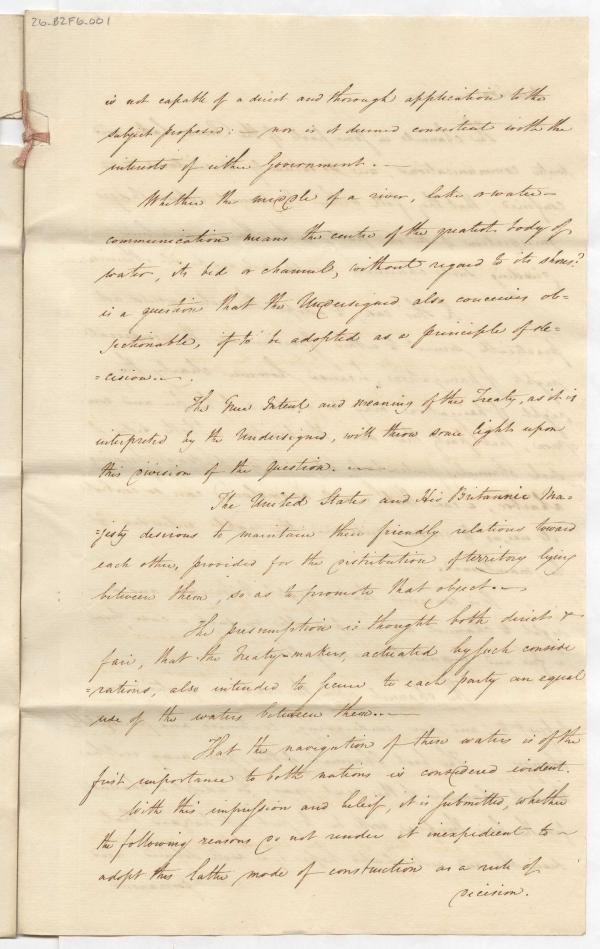 26-B2F6-001
is not capable of a direct and thorough application to the
subject proposed: — nor is it deemed consistent with the
interests of either Government. —
Whether the middle of a river, lake or water-
communication means the centre of the greatest body of
water, its bed or channel, without regard to its shores?
is a question that the Undersigned also conceives ob=
jectionable, if to be adopted as a principle of de=
=cision —.
The True Intent and meaning of the Treaty, as it is
interpreted by the Undersigned, will throw some lights upon
this division of the question. —
The United States and His Britannic Ma=
=jesty desirous to maintain their friendly relations toward
each other, provided for the distribution of territory lying
between them, so as to promote that object. —
The presumption is thought both direct &
fair, that the Treaty-makers, actuated by such conside
=rations, also intended to secure to each party an equal
use of the waters between them. —
That the navigation of these waters is of the
first importance to both nations is considered evident.
With this impression and belief, it is submitted, whether
the following reasons do not render it inexpedient to —
adopt this latter mode of construction as a rule of
decision.